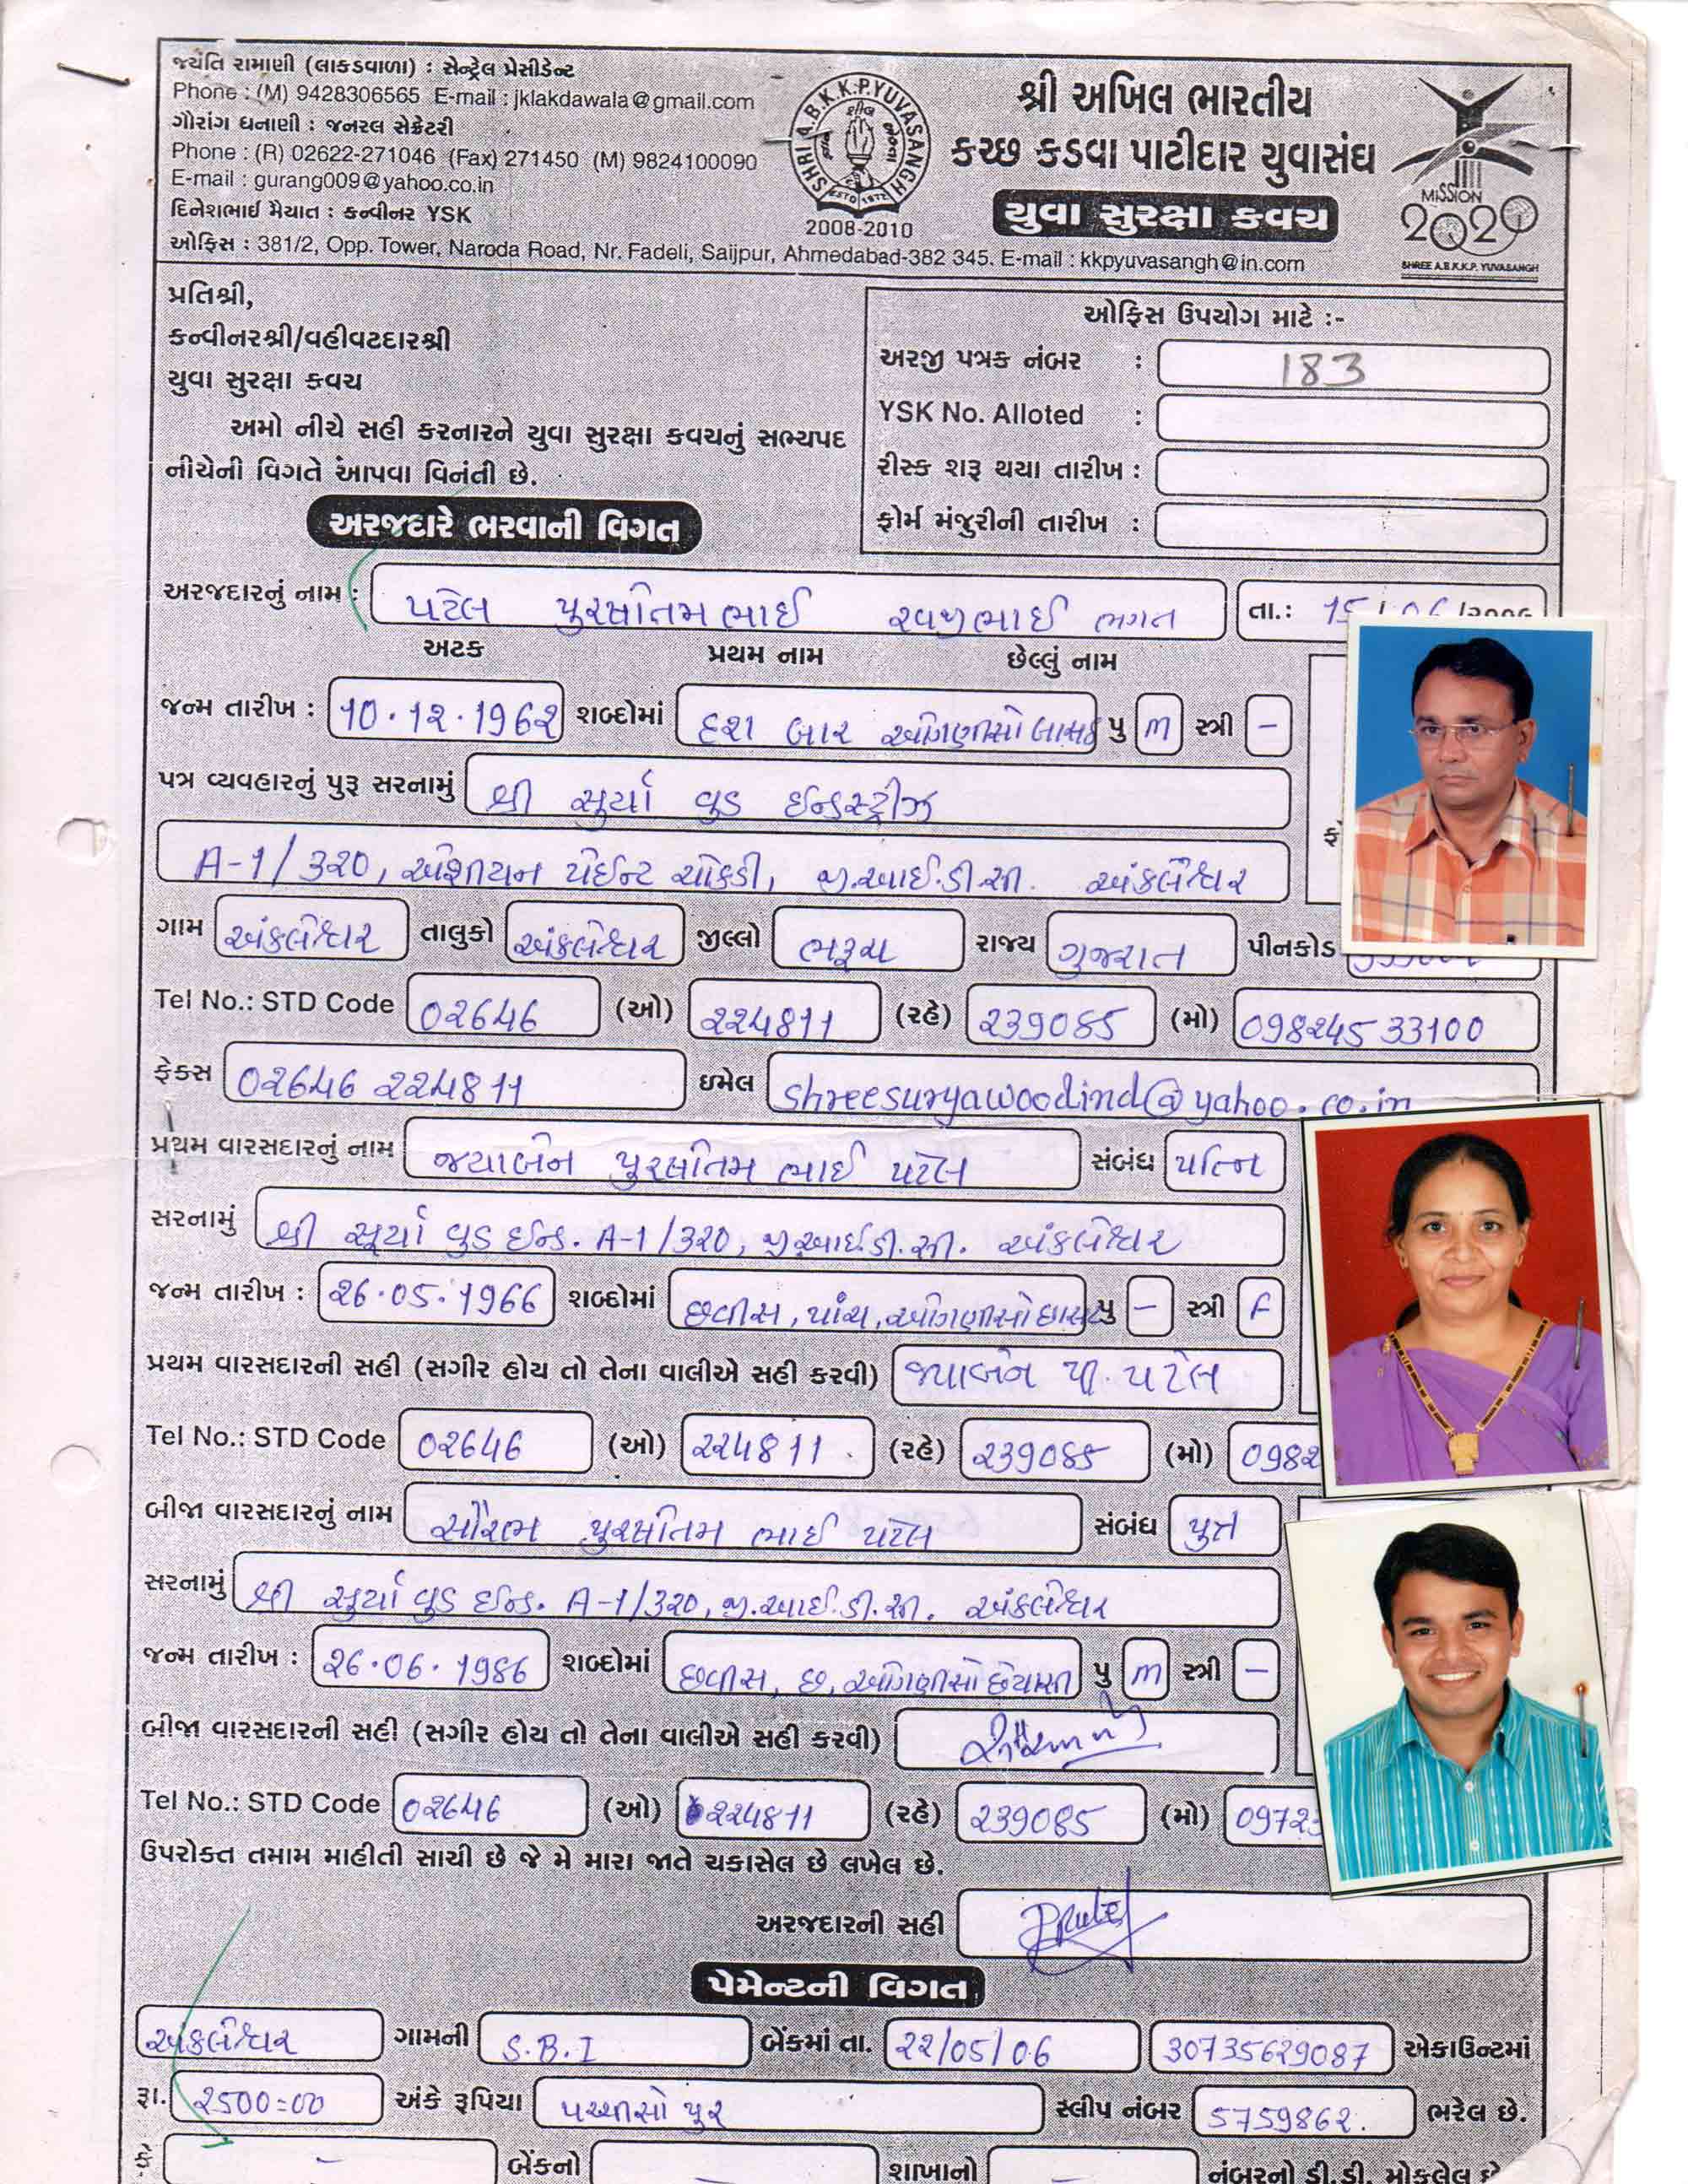 જયંતિ રામાણી (લાકડાવાળા) : સેન્ટ્રેલ પ્રેસીડેન્ટ
Phone : (M) 9428306565 E-mail : jklakdawala@gmail.com
ગૌરાંગ ધનાણી : જનરલ સેક્રેટરી
Phone : (R) 02622-271046 (Fax) 271450 (M) 9824100090
E-mail : gurang009@yahoo.co.in
દિનેશભાઈ મૈયાત : કન્વીનર YSK
ઓફિસ : 381/2, Opp. Tower, Naroda Road, Nr. Fadeli, Saijpur, Ahmedabad-382 345. E-mail : kkpyuvasangh@in.com
SHRI A.B.K.K.P.YUVASANGH
ESTD 1972
2008-2010
શ્રી અખિલ ભારતીય
કચ્છ કડવા પાટીદાર યુવાસંઘ
યુવા સુરક્ષા કવચ
MISSION
2020
SHREE A.B.K.K.P. YUVASANGH
પ્રતિશ્રી,
કન્વીનરશ્રી/વહીવટદારશ્રી
યુવા સુરક્ષા કવચ
અમો નીચે સહી કરનારને યુવા સુરક્ષા કવચનું સભ્યપદ
નીચેની વિગતે આપવા વિનંતી છે.
ઓફિસ ઉપયોગ માટે :-
અરજી પત્રક નંબર : 183
YSK No. Alloted :
રીસ્ક શરૂ થયા તારીખ :
ફોર્મ મંજુરીની તારીખ :
અરજદારે ભરવાની વિગત
અરજદારનું નામ : પટેલ પુરષોતમભાઈ રવજીભાઈ ભગત તા.: 15 / 06 /2006
અટક પ્રથમ નામ છેલ્લું નામ
જન્મ તારીખ : 10.12.1962 શબ્દોમાં દશ બાર ઓગણીસો બાસઠ પુ m સ્ત્રી -
પત્ર વ્યવહારનું પુરૂ સરનામું શ્રી સુર્યા વુડ ઈન્ડસ્ટ્રીઝ
A-1/320, એશીયન પેઈન્ટ ચોકડી, જી.આઈ.ડી.સી. અંકલેશ્વર
ગામ અંકલેશ્વર તાલુકો અંકલેશ્વર જીલ્લો ભરૂચ રાજ્ય ગુજરાત પીનકોડ
Tel No.: STD Code 02646 (ઓ) 224811 (રહે) 239085 (મો) 098245 33100
ફેક્સ 02646 224811 ઇમેલ shreesuryawoodind@yahoo.co.in
પ્રથમ વારસદારનું નામ જયાબેન પુરષોતમ ભાઈ પટેલ સંબંધ પત્નિ
સરનામું શ્રી સૂર્યા વુડ ઈન્ડ. A-1/320, જી.આઈ.ડી.સી. અંકલેશ્વર
જન્મ તારીખ : 26.05.1966 શબ્દોમાં છવીસ, પાંચ, ઓગણીસો છાસઠ પુ - સ્ત્રી F
પ્રથમ વારસદારની સહી (સગીર હોય તો તેના વાલીએ સહી કરવી) જયાબેન પી. પટેલ
Tel No.: STD Code 02646 (ઓ) 224811 (રહે) 239085 (મો) 0982
બીજા વારસદારનું નામ સૌરભ પુરષોતમ ભાઈ પટેલ સંબંધ પુત્ર
સરનામું શ્રી સુર્યા વુડ ઈન્ડ. A-1/320, જી.આઈ.ડી.સી. અંકલેશ્વર
જન્મ તારીખ : 26.06.1986 શબ્દોમાં છવીસ, છ, ઓગણીસો છેયાસી પુ m સ્ત્રી -
બીજા વારસદારની સહી (સગીર હોય તો તેના વાલીએ સહી કરવી)
Tel No.: STD Code 02646 (ઓ) 224811 (રહે) 239085 (મો) 09723
ઉપરોક્ત તમામ માહીતી સાચી છે જે મે મારા જાતે ચકાસેલ છે લખેલ છે.
અરજદારની સહી
પેમેન્ટની વિગત
અંકલેશ્વર ગામની S.B.I બેંકમાં તા. 22/05/06 30735629087 એકાઉન્ટમાં
રૂા. 2500=00 અંકે રૂપિયા પચ્ચીસો પુર સ્લીપ નંબર 5759862. ભરેલ છે.
કે - બેંકનો - શાખાનો - નંબરનો ડી.ડી. મોકલેલ છે